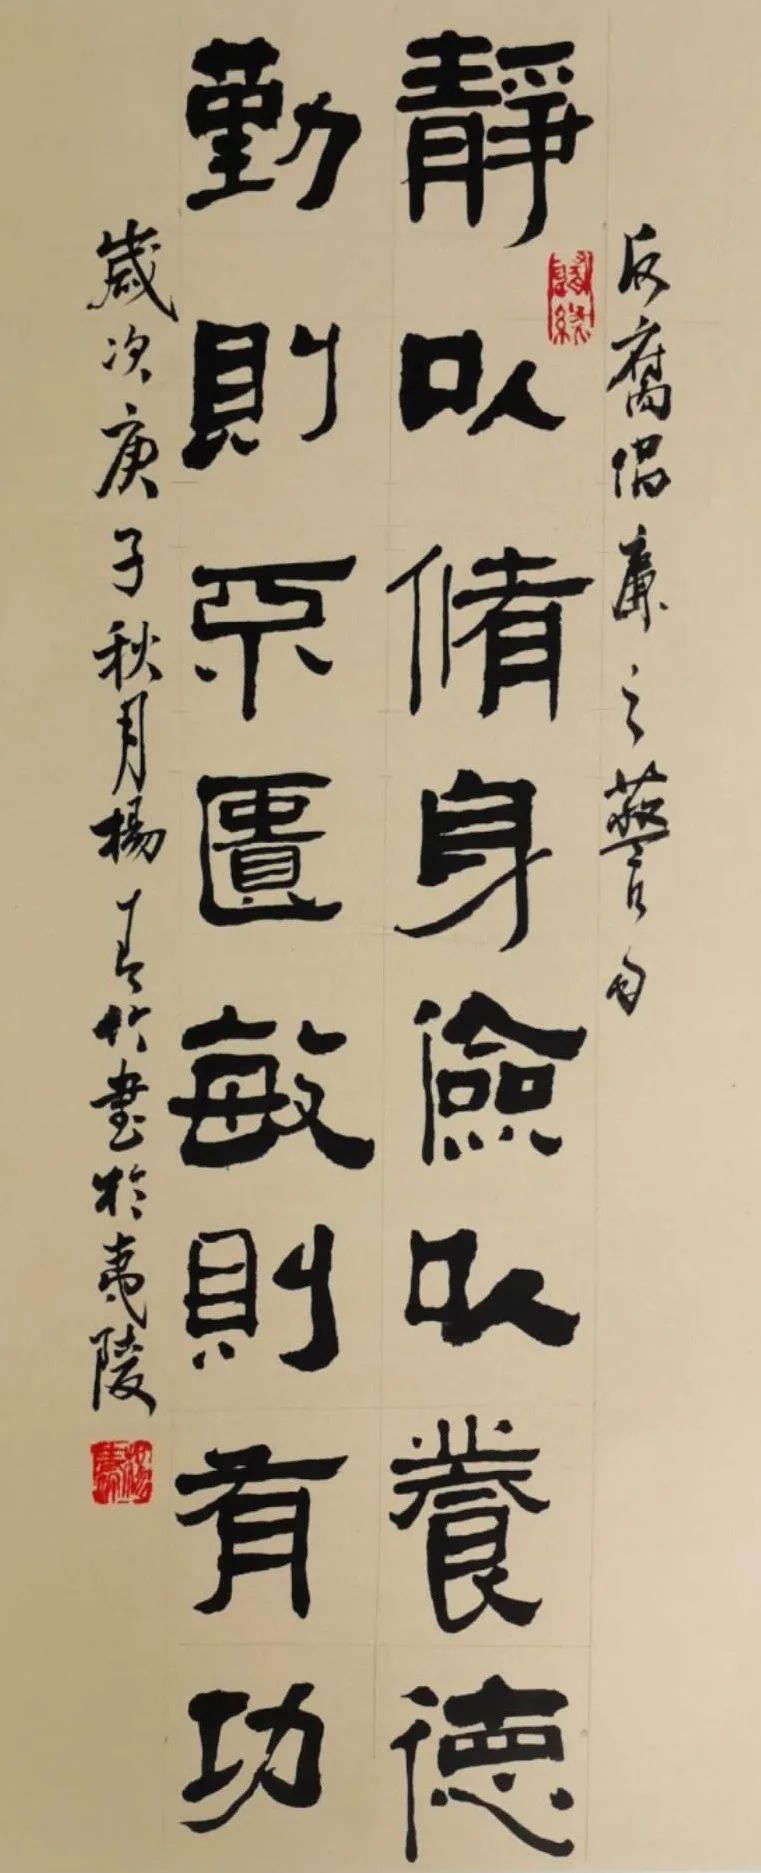 反腐倡廉之警句
靜以脩身儉以養德
勤則不匱敏則有功
歲次庚子秋月楊青竹書於夷陵